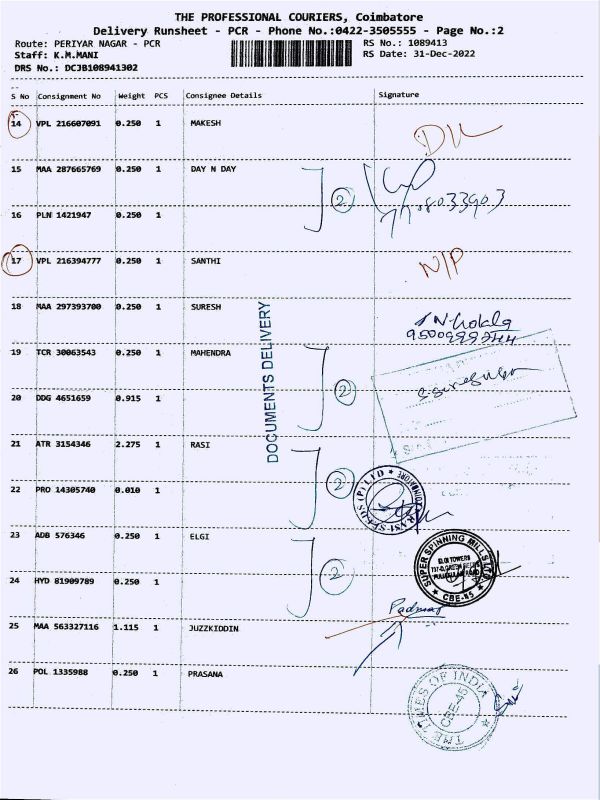 THE PROFESSIONAL COURIERS, Coimbatore
Delivery Runsheet - PCR - Phone No.:0422-3505555 - Page No.:2
Route: PERIYAR NAGAR - PCR
Staff: K.M.MANI
DRS No.: DCJB108941302
RS No.: 1089413
RS Date: 31-Dec-2022
S No Consignment No Weight PCS Consignee Details Signature
14 VPL 216607091 0.250 1 MAKESH
15 MAA 287665769 0.250 1 DAY N DAY
2
16 PLN 1421947 0.250 1
17 VPL 216394777 0.250 1 SANTHI N/P
18 MAA 297393700 0.250 1 SURESH
19 TCR 30063543 0.250 1 MAHENDRA
2
20 DDG 4651659 0.915 1
DOCUMENTS DELIVERY
21 ATR 3154346 2.275 1 RASI
2
22 PRO 14305740 0.010 1
RASI SEEDS (P) LTD * COIMBATORE *
23 ADB 576346 0.250 1 ELGI
2
SUPER SPINNING MILLS LTD
ELGI TOWERS
* CBE-45 *
24 HYD 81909789 0.250 1
Padmas
25 MAA 563327116 1.115 1 JUZZKIDDIN
26 POL 1335988 0.250 1 PRASANA
THE TIMES OF INDIA
CBE-45